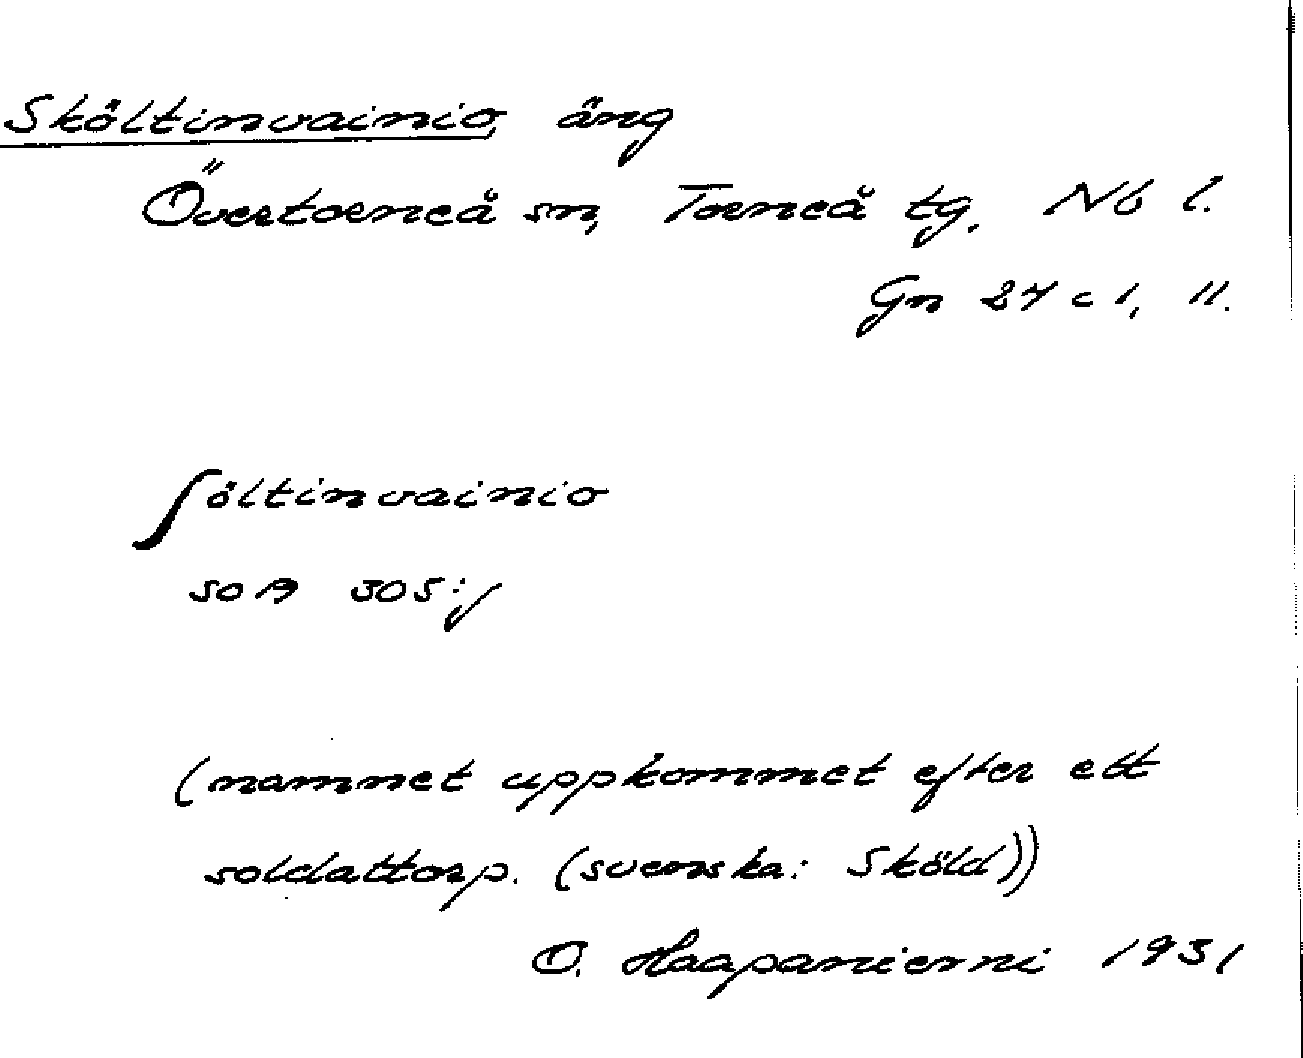 Sköltinvainio, äng
Övertorneå sn, Torneå tg. Nb l.
Gn 27 c 1, 11.
ʃöltinvainio
SOA 305:1
(namnet uppkommet efter ett
soldattorp. (svenska: Sköld))
O. Haapaniemi 1931